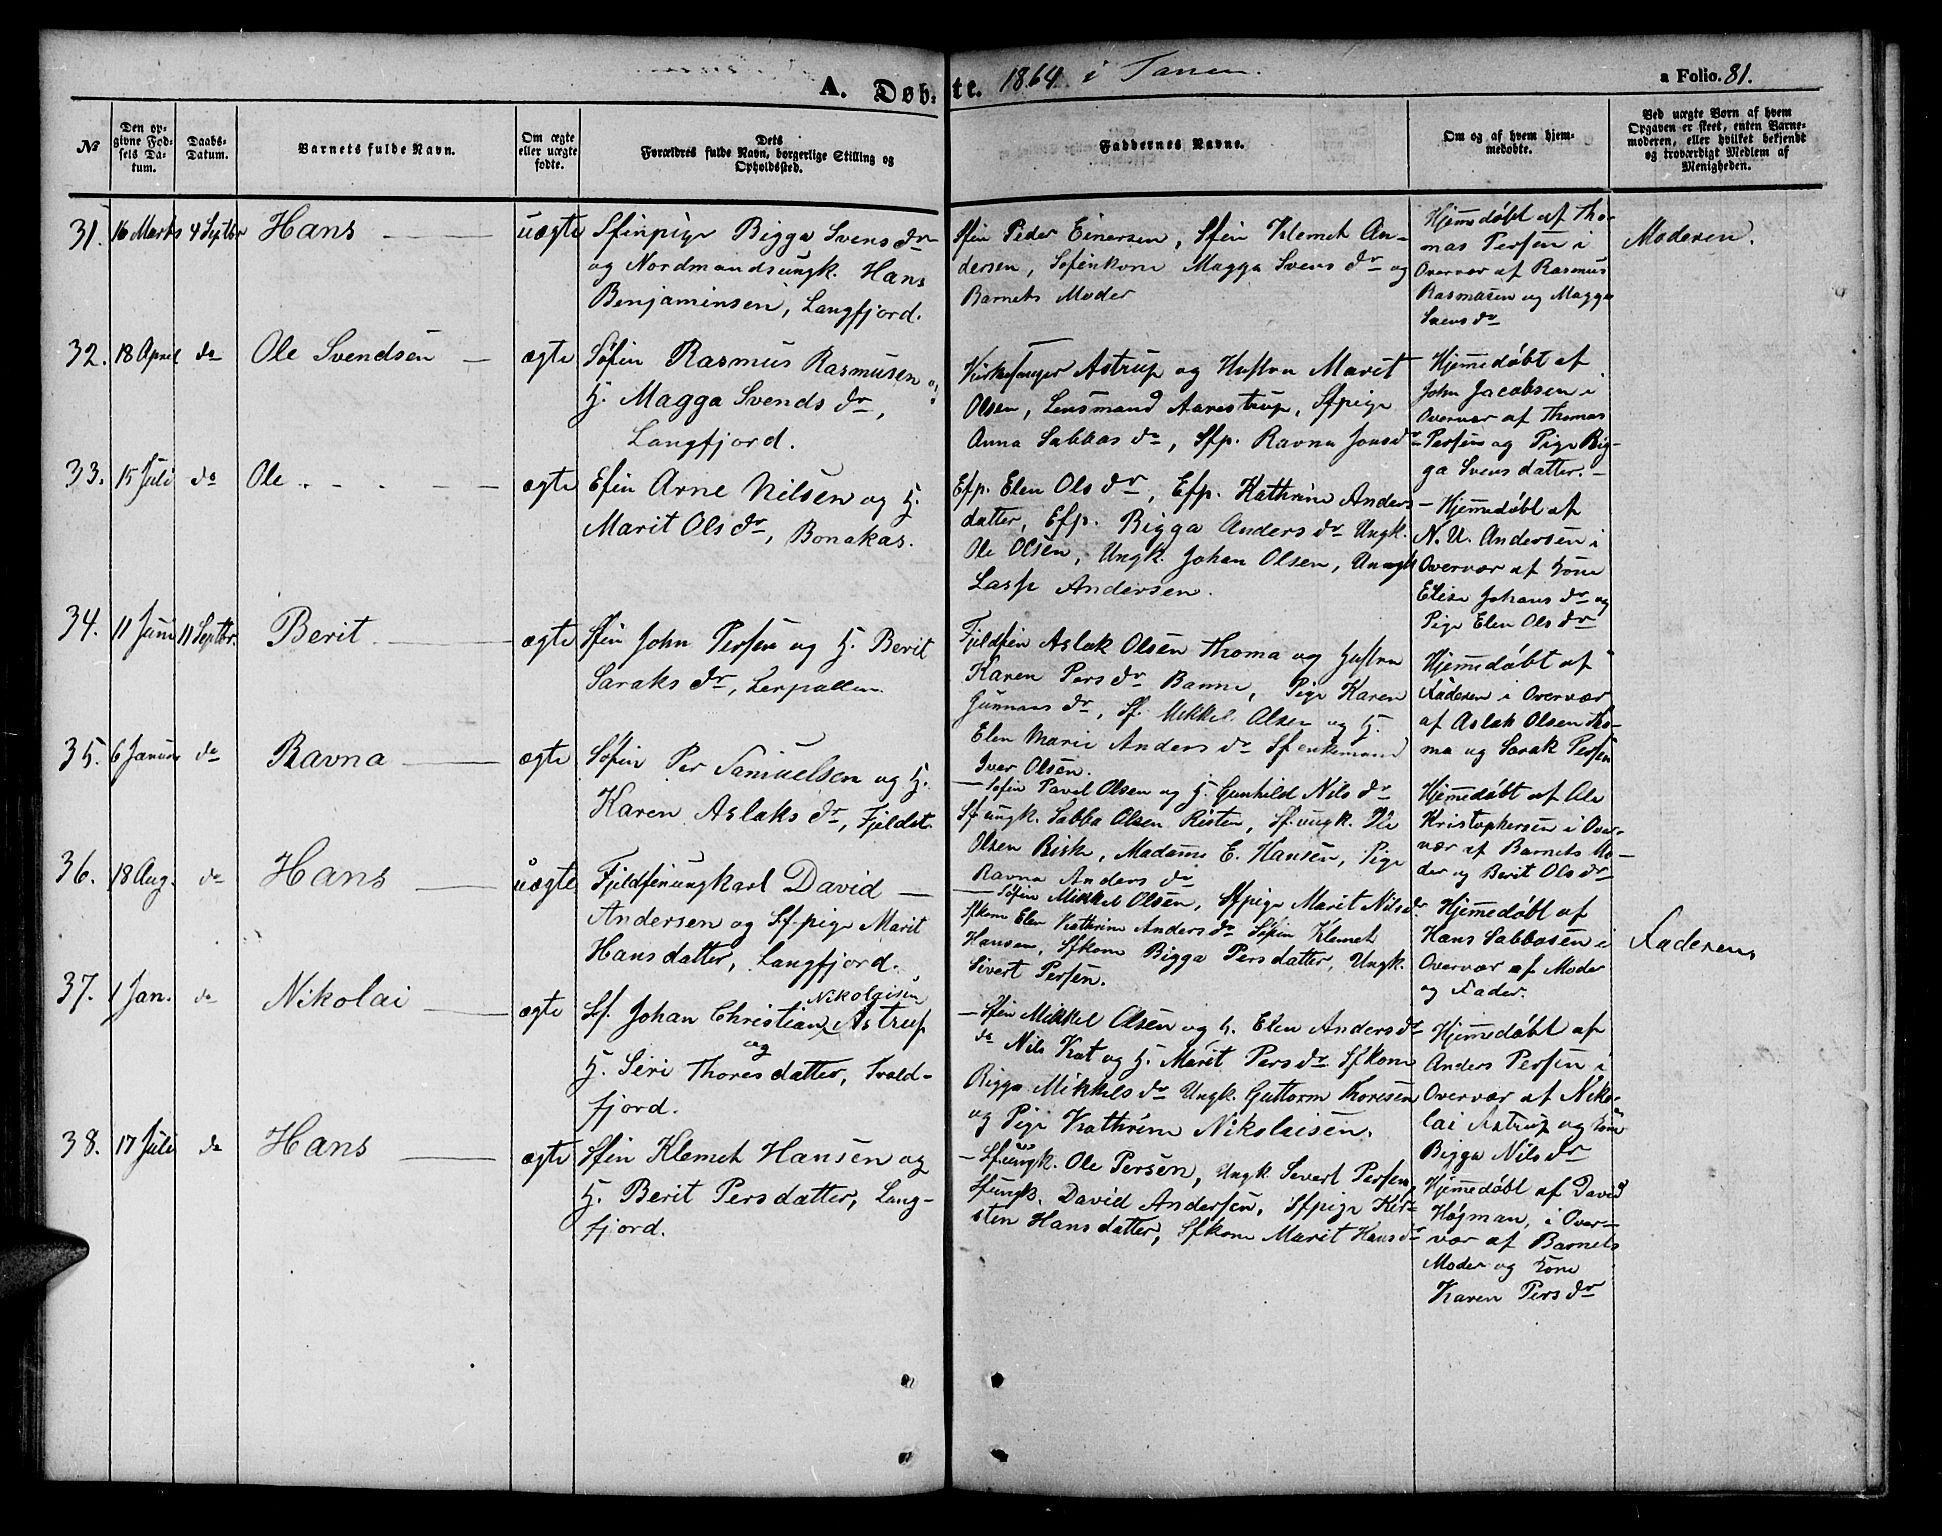 A. Døb-te. 1864 i Tanen.
a Folio. 81.
No
Den op-
givne Fød-
sels Da-
tum.
Daabs-
Datum.
Barnets fulde Navn.
Om ægte
eller uægte
fødte.
Dets
Forældres fulde Navn, borgerlige Stilling og
Opholdssted.
Faddernes Navne.
Om og af hvem hjem-
medøbte.
Ved uægte Børn af hvem
Opgaven er skeet, enten Barne-
moderen, eller hvilket bekjendt
og troværdigt Medlem af
Menigheden.
31. 16 Marts 4 Septbr Hans uægte
Sfinpige Bigga Svens dr
og Nordmandsungk. Hans
Benjaminsen, Langfjord.
Sfin Peder Einersen, Sfin Klemet An-
dersen, Søfinkone Magga Svens dr og
Barnets Moder
Hjemedøbt af Tho-
mas Persen i
Overvær af Rasmus
Rasmusen og Magga
Svens dr
Moderen.
32. 18 April do Ole Svendsen ægte
Søfin Rasmus Rasmusen og
H. Magga Svends dr,
Langfjord.
Kirkesanger Astrup og Hustru Marit
Olsen, Lensmand Aarestrup, Sfpige
Anna Sabbas dr, Sfp. Ravna Jons dr
Hjemedøbt af
John Jacobsen i
Overvær af Thomas
Persen og Pige Big-
ga Svens datter.
33. 15 Juli do Ole ægte
Efin Arne Nilsen og H.
Marit Ols dr, Bonakas.
Efp. Elen Ols dr, Efp. Kathrine Anders
datter, Efp. Bigga Anders dr Ungk.
Ole Olsen, Ungk. Johan Olsen, Ungk
Lasse Andersen.
Hjemedøbt af
N. U. Andersen i
Overvær af Kone
Elise Johans dr og
Pige Elen Ols dr
34. 11 Juni 11 Septbr. Berit ægte
Sfin John Persen og H. Berit
Saraks dr, Lerpollen
Fjeldfin Aslak Olsen Thoma og Hustru
Karen Pers dr Banne, Pige Karen
Gunnars dr, Sf. Mikkel Olsen og H.
Elen Marie Anders dr Sfenkemand
Iver Olsen.
Hjemedøbt af
Faderen i Overvær
af Aslak Olsen Tho-
ma og Sarak Persen
35. 6 Januar do Ravna ægte
Søfin Per Samuelsen og H.
Karen Aslaks dr, Fjeldst.
Søfin Pavel Olsen og H. Gunhild Nils dr
Sfungk. Sabba Olsen Risten, Sf. ungk. Ole
Olsen Bisk, Madame E. Hansen, Pige
Ravna Anders dr
Hjemedøbt af Ole
Kristophersen i Over-
vær af Barnets Mo-
der og Berit Ols dr
36. 18 Aug. do Hans uægte
Fjeldfinungkarl David
Andersen og Sf. pige Marit
Hansdatter, Langfjord.
Søfin Mikkel Olsen, Sfpige Marit Nils dr.
Sfkone Elen Kathrine Anders dr Søfin Klemet
Hansen, Sfkone Bigga Persdatter, Ungk.
Sivert Persen.
Hjemedøbt af
Hans Sabbasen i
Overvær af Moder
og Fader.
Faderen
37. 1 Jan. do Nikolai ægte
Nikolaisen
Sf. Johan Christian Astrup
og
H. Seri Thoresdatter, Vald-
fjord.
Sfin Mikkel Olsen og H. Elen Anders dr
do Nils Kat og H. Marit Pers dr Sfkone
Bigga Mikkels dr Ungk. Guttorm Thoresen
og Pige Kathrine Nikolaisen.
Hjemedøbt af
Anders Persen i
Overvær af Niko-
lai Astrup og Kone
Bigga Nils dr
38. 17 Juli do Hans ægte
Sfin Klemet Hansen og
H. Berit Persdatter, Lang-
fjord.
Sfungk. Ole Persen, Ungk. Severt Persen,
Sfungk. David Andersen, Sfpige Kir-
sten Hansdatter, Sfkone Marit Hans dr
Hjemedøbt af David
Høgman, i Over-
vær af Barnets
Moder og Kone
Karen Pers dr